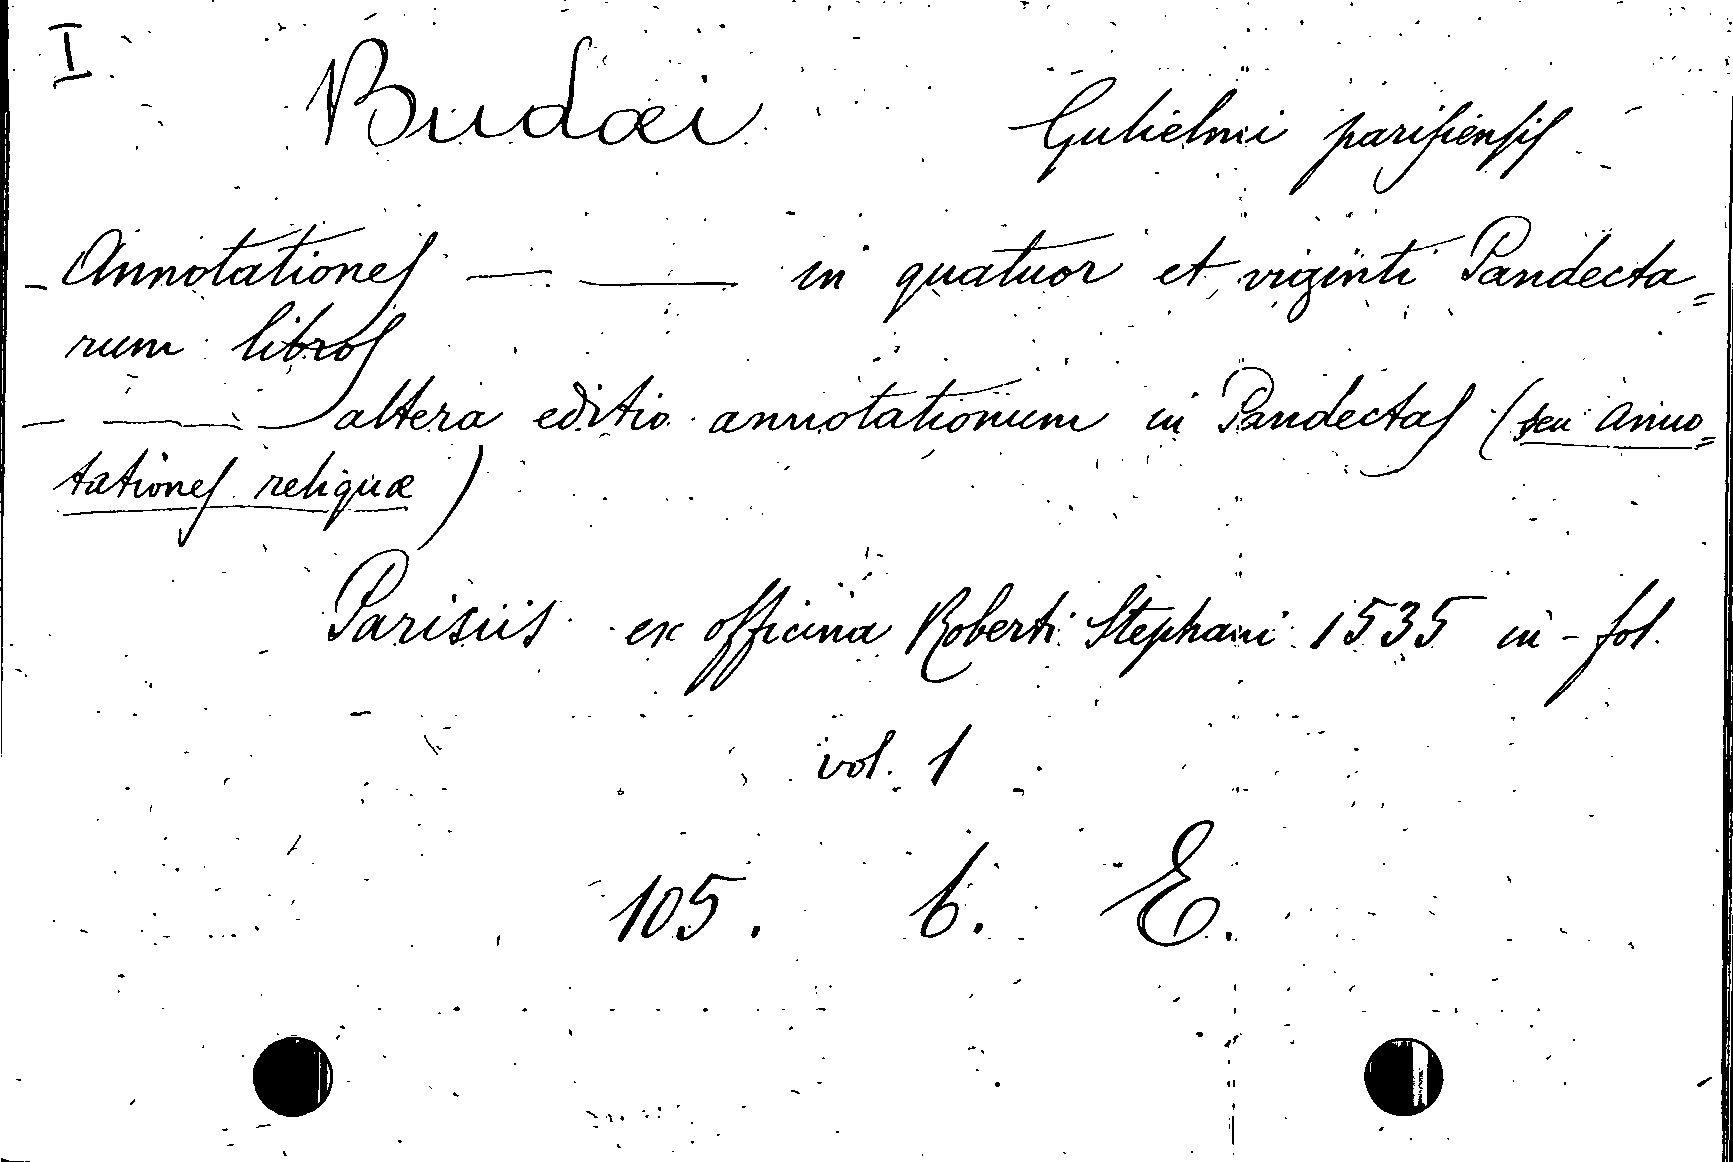 I
Budæi Gulielmi parisiensis
- Annotationes — — in quatuor et viginti Pandecta=
rum libros
— — altera editio annotationum in Pandectas (seu Anno=
tationes reliquæ)
Parisiis ex officina Roberti Stephani 1535 in-fol.
vol. 1
105. 6. E.